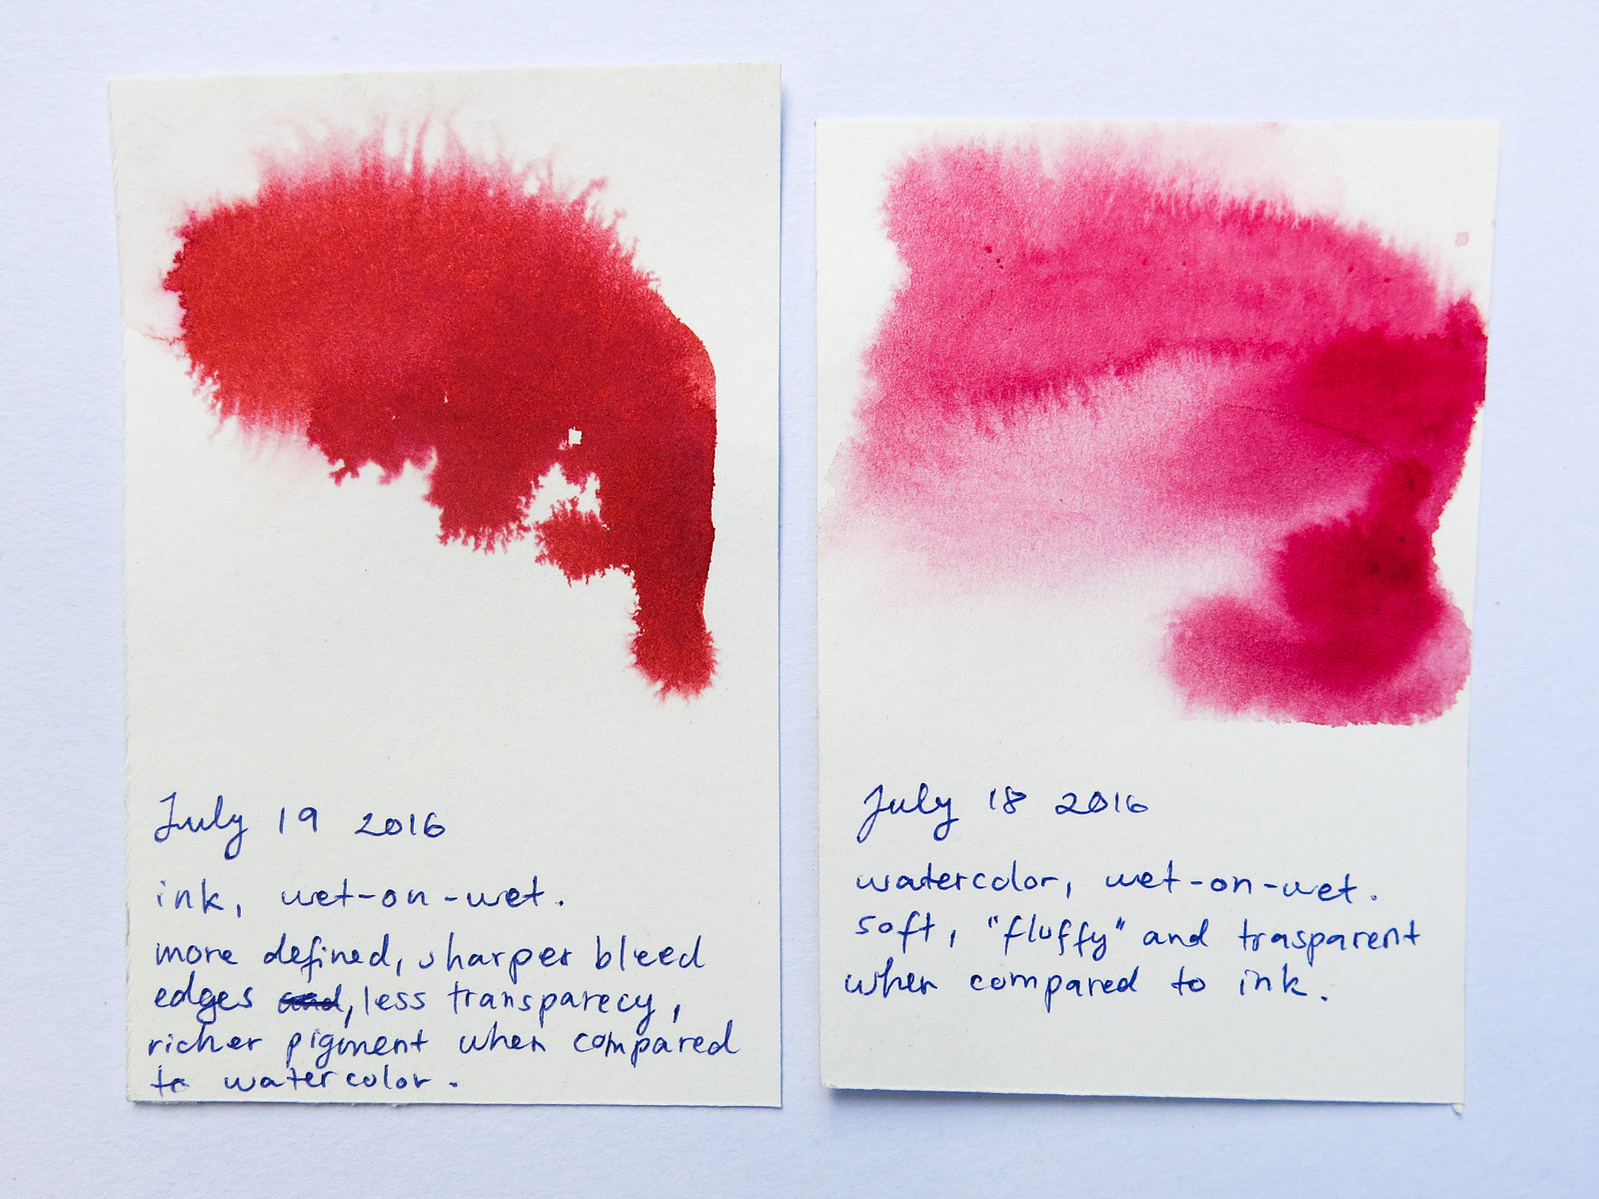 July 19 2016
ink, wet-on-wet.
more defined, sharper bleed
edges and, less transparecy,
richer pigment when compared
to watercolor.
July 18 2016
watercolor, wet-on-wet.
soft, "fluffy" and trasparent
when compared to ink.